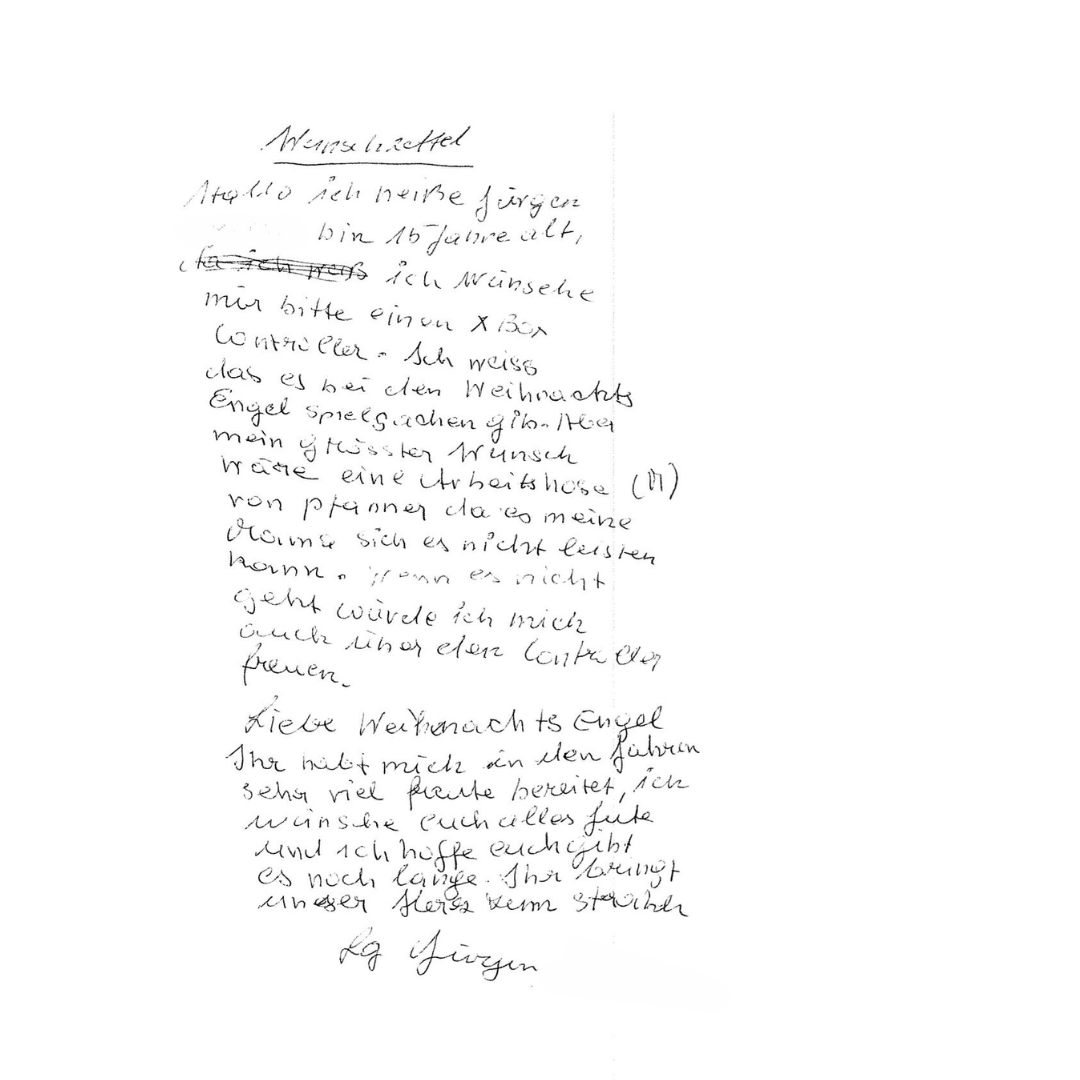 Wunschzettel
Hallo ich heiße Jürgen
bin 15 Jahre alt,
da ich weiß ich wünsche
mir bitte einen X Box
Controller. Ich weiss
das es bei den Weihnachts
Engel spielsachen gib. Aber
mein grösster Wunsch
wäre eine Arbeitshose (M)
von pfanner da es meine
Mama sich es nicht leisten
kann. Wenn es nicht
geht würde ich mich
auch über den Controller
freuen.
Liebe Weihnachts Engel
Ihr habt mich in den Jahren
sehr viel freute bereitet, ich
wünsche euch alles gute
und ich hoffe euch gibt
es noch lange. Ihr bringt
unser Herz zum strahlen
Lg Jürgen